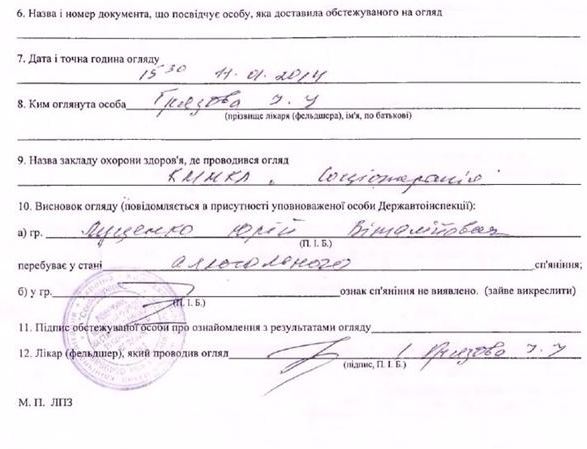 6. Назва і номер документа, що посвідчує особу, яка доставила обстежуваного на огляд
7. Дата і точна година огляду
15 30 11.01.2014
8. Ким оглянута особа Грязова І. У
(прізвище лікаря (фельдшера), ім'я, по батькові)
9. Назва закладу охорони здоров'я, де проводився огляд
КММКЛ „Соціотерапія
10. Висновок огляду (повідомляється в присутності уповноваженої особи Державтоінспекції):
а) гр. Луценко Юрій Віталійович
(П. І. Б.)
перебуває у стані алкогольного сп'яніння;
б) у гр. ознак сп'яніння не виявлено. (зайве викреслити)
(П. І. Б.)
11. Підпис обстежуваної особи про ознайомлення з результатами огляду
12. Лікар (фельдшер), який проводив огляд Грязова І. У
(підпис, П. І. Б.)
М. П. ЛПЗ